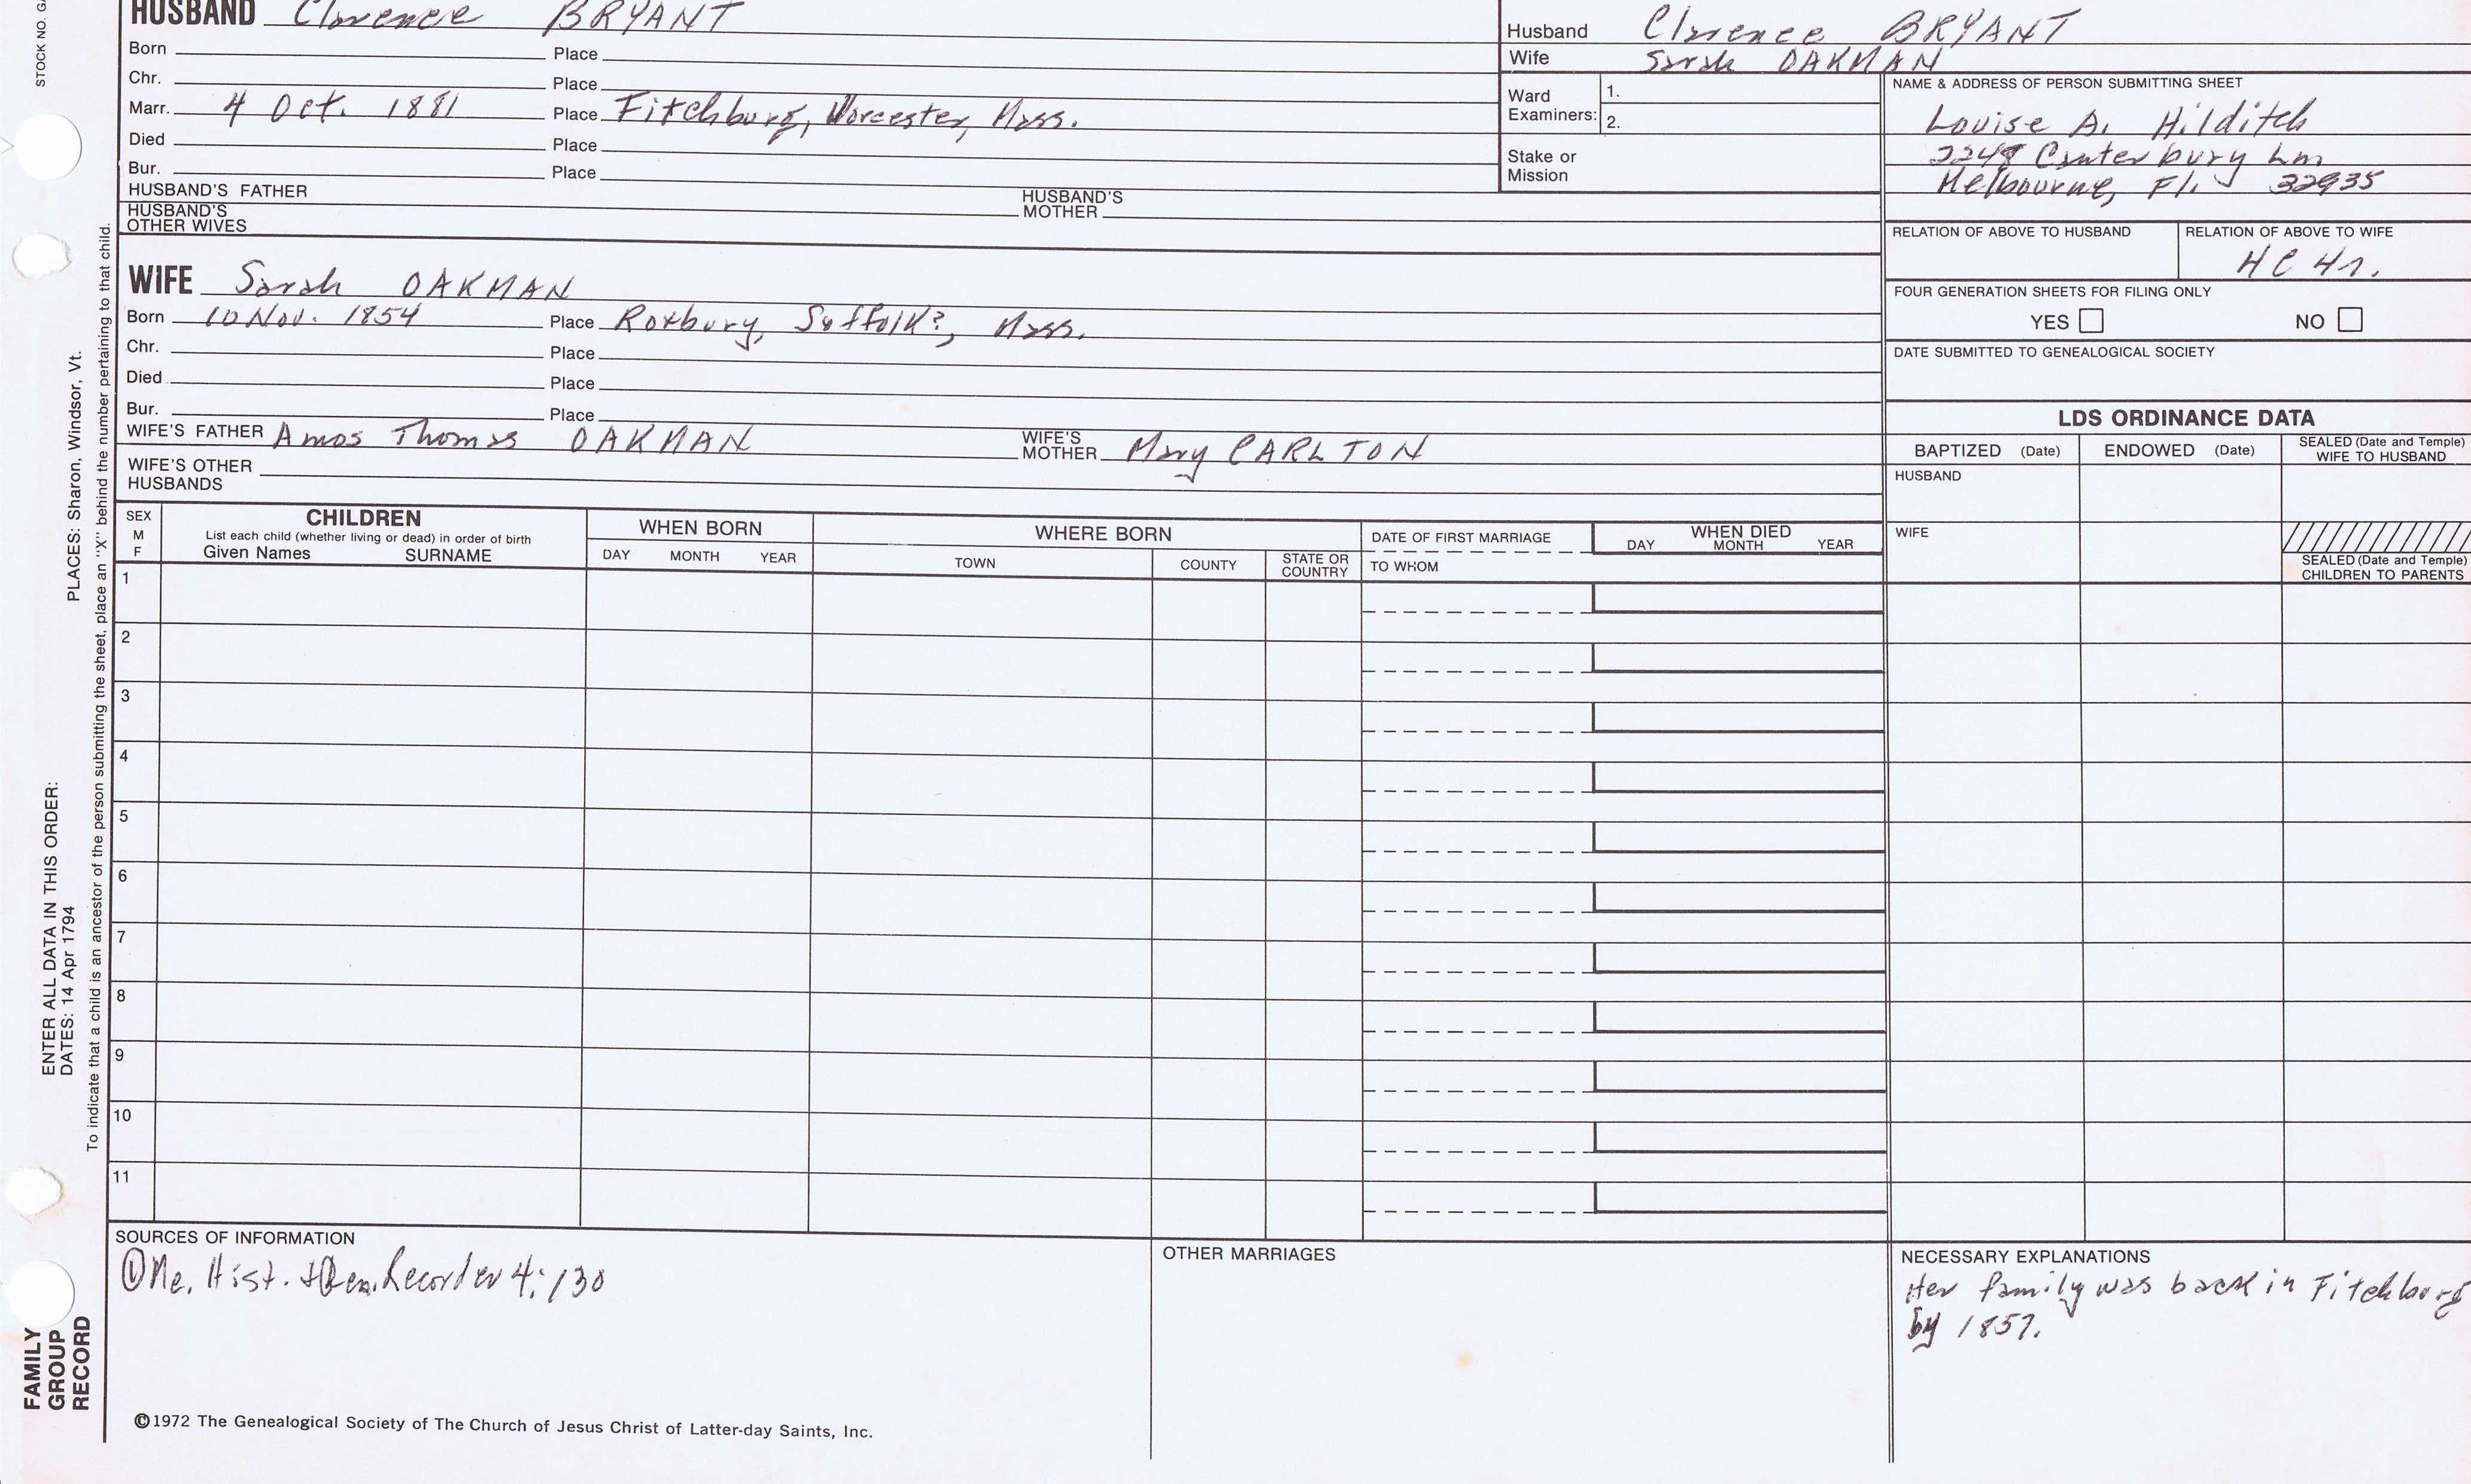 STOCK NO.
HUSBAND Clarence BRYANT
Born Place
Chr. Place
Marr. 4 Oct. 1881 Place Fitchburg, Worcester, Mass.
Died Place
Bur. Place
HUSBAND'S FATHER HUSBAND'S MOTHER
HUSBAND'S OTHER WIVES
WIFE Sarah OAKMAN
Born 10 Nov. 1854 Place Roxbury, Suffolk?, Mass.
Chr. Place
Died Place
Bur. Place
WIFE'S FATHER Amos Thomas OAKMAN WIFE'S MOTHER Mary CARLTON
WIFE'S OTHER HUSBANDS
Husband Clarence BRYANT
Wife Sarah OAKMAN
Ward Examiners: 1.
2.
Stake or Mission
NAME & ADDRESS OF PERSON SUBMITTING SHEET
Louise A. Hilditch
2248 Canterbury Ln
Melbourne, Fl. 32935
RELATION OF ABOVE TO HUSBAND RELATION OF ABOVE TO WIFE
FOUR GENERATION SHEETS FOR FILING ONLY
YES NO
DATE SUBMITTED TO GENEALOGICAL SOCIETY
LDS ORDINANCE DATA
BAPTIZED (Date) ENDOWED (Date) SEALED (Date and Temple) WIFE TO HUSBAND
HUSBAND
WIFE
SEALED (Date and Temple) CHILDREN TO PARENTS
SEX M F
CHILDREN
List each child (whether living or dead) in order of birth
Given Names SURNAME
WHEN BORN
DAY MONTH YEAR
WHERE BORN
TOWN COUNTY STATE OR COUNTRY
DATE OF FIRST MARRIAGE
TO WHOM
WHEN DIED
DAY MONTH YEAR
1
2
3
4
5
6
7
8
9
10
11
SOURCES OF INFORMATION
① Me. Hist. & Gen. Recorder 4:130
OTHER MARRIAGES
NECESSARY EXPLANATIONS
Her family was back in Fitchburg
by 1857.
©1972 The Genealogical Society of The Church of Jesus Christ of Latter-day Saints, Inc.
ENTER ALL DATA IN THIS ORDER:
DATES: 14 Apr 1794 PLACES: Sharon, Windsor, Vt.
To indicate that a child is an ancestor of the person submitting the sheet, place an "X" behind the number pertaining to that child.
FAMILY
GROUP
RECORD